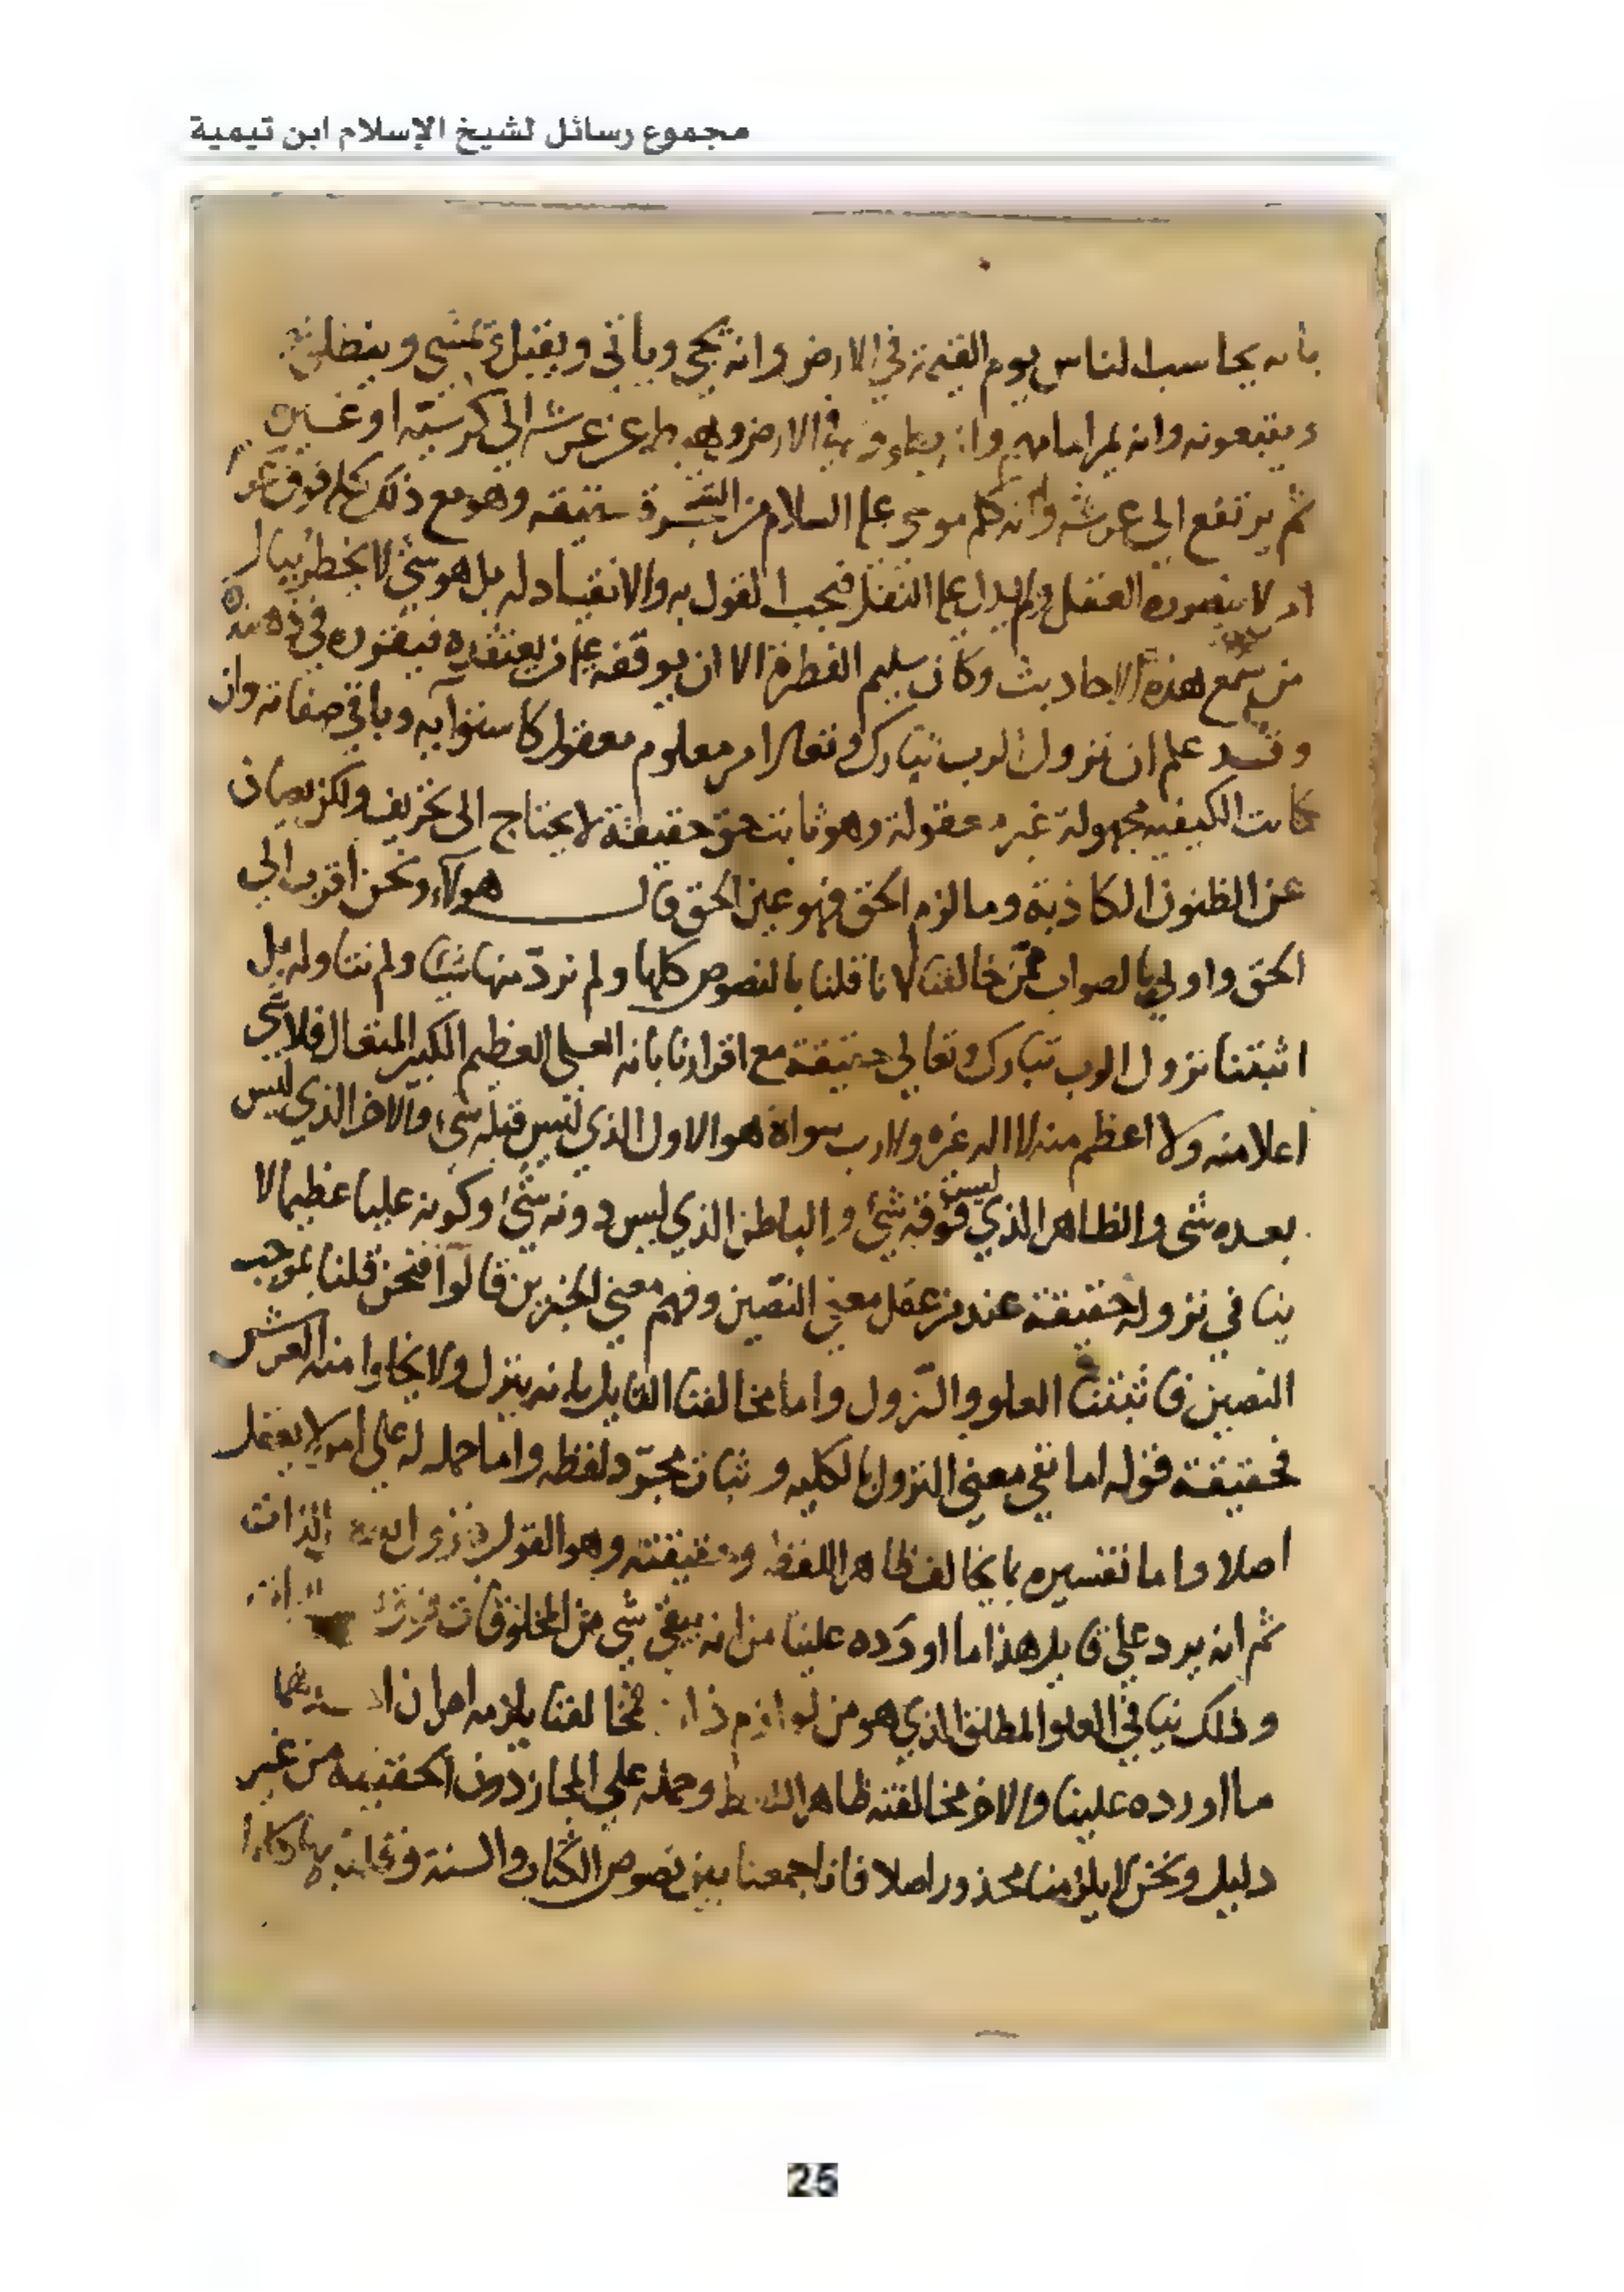 مجموع رسائل لشيخ الإسلام ابن تيمية
بانه يحاسب الناس يوم القيمة في الارض وانه يجي وياتي ويقبل ويمشي وينطلق
ويتبعونه وانه يمر امامهم وانه يطوف في الارض ويهبط عن عرشه الى كرسيه او غيره
ثم يرتفع الى عرشه وانه كلم موسى عليه السلام من الشجرة حقيقة وهو مع ذلك كله فوق
لا يتصوره العقل ولم يدل عليه النقل فيجب القول به والانقياد له بل هو شي لا يخطر ببال
من سمع هذه الاحاديث وكان سليم الفطرة الا ان يوقفه عليه من يعتقده فيقرره في ذهنه
وقد علم ان نزول الرب تبارك وتعالى امر معلوم معقول كاستوآيه وباقي صفاته وان
كانت الكيفيه مجهولة غير معقولة وهو ثابت حق حقيقة لا يحتاج الى تحريف ولكن يصان
عن الظنون الكاذبة وما لزم الحق فهو عين الحق قال هولآء ونحن اقرب الى
الحق واولى بالصواب ممن خالفنا لانا قلنا بالنصوص كلها ولم نردّ منها شيئا ولم نتاوله بل
اثبتنا نزول الرب تبارك وتعالى حقيقة مع اقرارنا بانه العلي العظيم الكبير المتعال فلا شي
اعلا منه ولا اعظم منه لا اله غيره ولا رب سواه هو الاول الذي ليس قبله شي والاخر الذي ليس
بعده شي والظاهر الذي ليس فوقه شي والباطن الذي ليس دونه شي وكونه عليا عظيما لا
ينافي نزوله حقيقة عند من عقل معنى النصّين وفهم معنى الخبرين قالوا فنحن قلنا بموجب
النصين فاثبتنا العلو والنزول واما مخالفنا القايل بانه ينزل ولا يخلوا منه العرش
فحقيقة قوله اما نفي معنى النزول بالكليه واثبات مجرّد لفظه واما حمله له على امر لا يعقل
اصلا واما تفسيره بما يخالف ظاهر اللفظ وحقيقته وهو القول بنزول الذات
ثم انه يرد على قايل هذا ما اورده علينا من انه يبقى شي من المخلوقات فوق
وذلك ينافي العلو المطلق الذي هو من لوازم ذاته فمخالفنا يلزمه امران احدهما
ما اورده علينا والاخر مخالفته ظاهر اللفظ وحمله على المجاز دون الحقيقه من غير
دليل ونحن لا يلزمنا محذور اصلا فانا جمعنا بين نصوص الكتاب والسنة وقلنا بها كلها
25